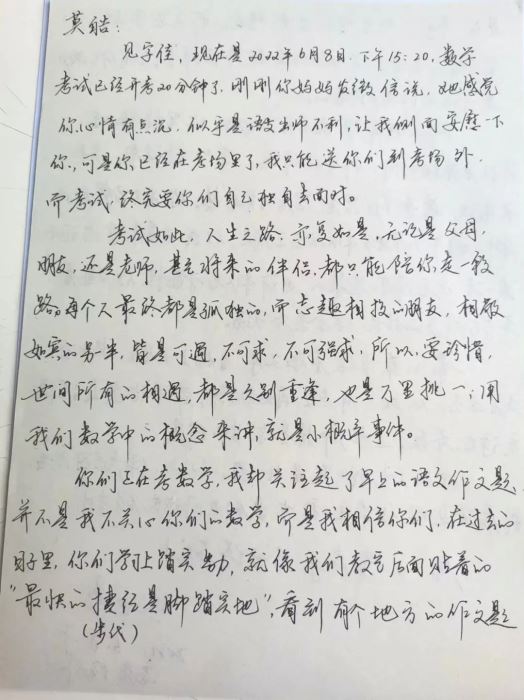 莫皓:
见字佳，现在是2022年6月8日.下午15:20,数学
考试已经开考20分钟了.刚刚你妈妈发微信说，她感觉
你心情有点沉.似乎是语文出师不利,让我侧面安慰一下
你,可是你已经在考场里了,我只能送你们到考场外.
而考试.终究要你们自己独自去面对。
考试如此,人生之路.亦复如是,无论是父母,
朋友,还是老师,甚至将来的伴侣,都只能陪你走一段
路,每个人最终都是孤独的,而志趣相投的朋友,相敬
如宾的另半,皆是可遇,不可求,不可强求.所以,要珍惜,
世间所有的相遇,都是久别重逢,也是万里挑一;用
我们数学中的概念来讲,就是小概率事件。
你们正在考数学,我却关注起了早上的语文作文题.
并不是我不关心你们的数学,而是我相信你们,在过去的
日子里,你们学习上踏实努力,就像我们教室后面贴着的
"最快的捷径是脚踏实地",看到有个地方的作文题
(步伐)